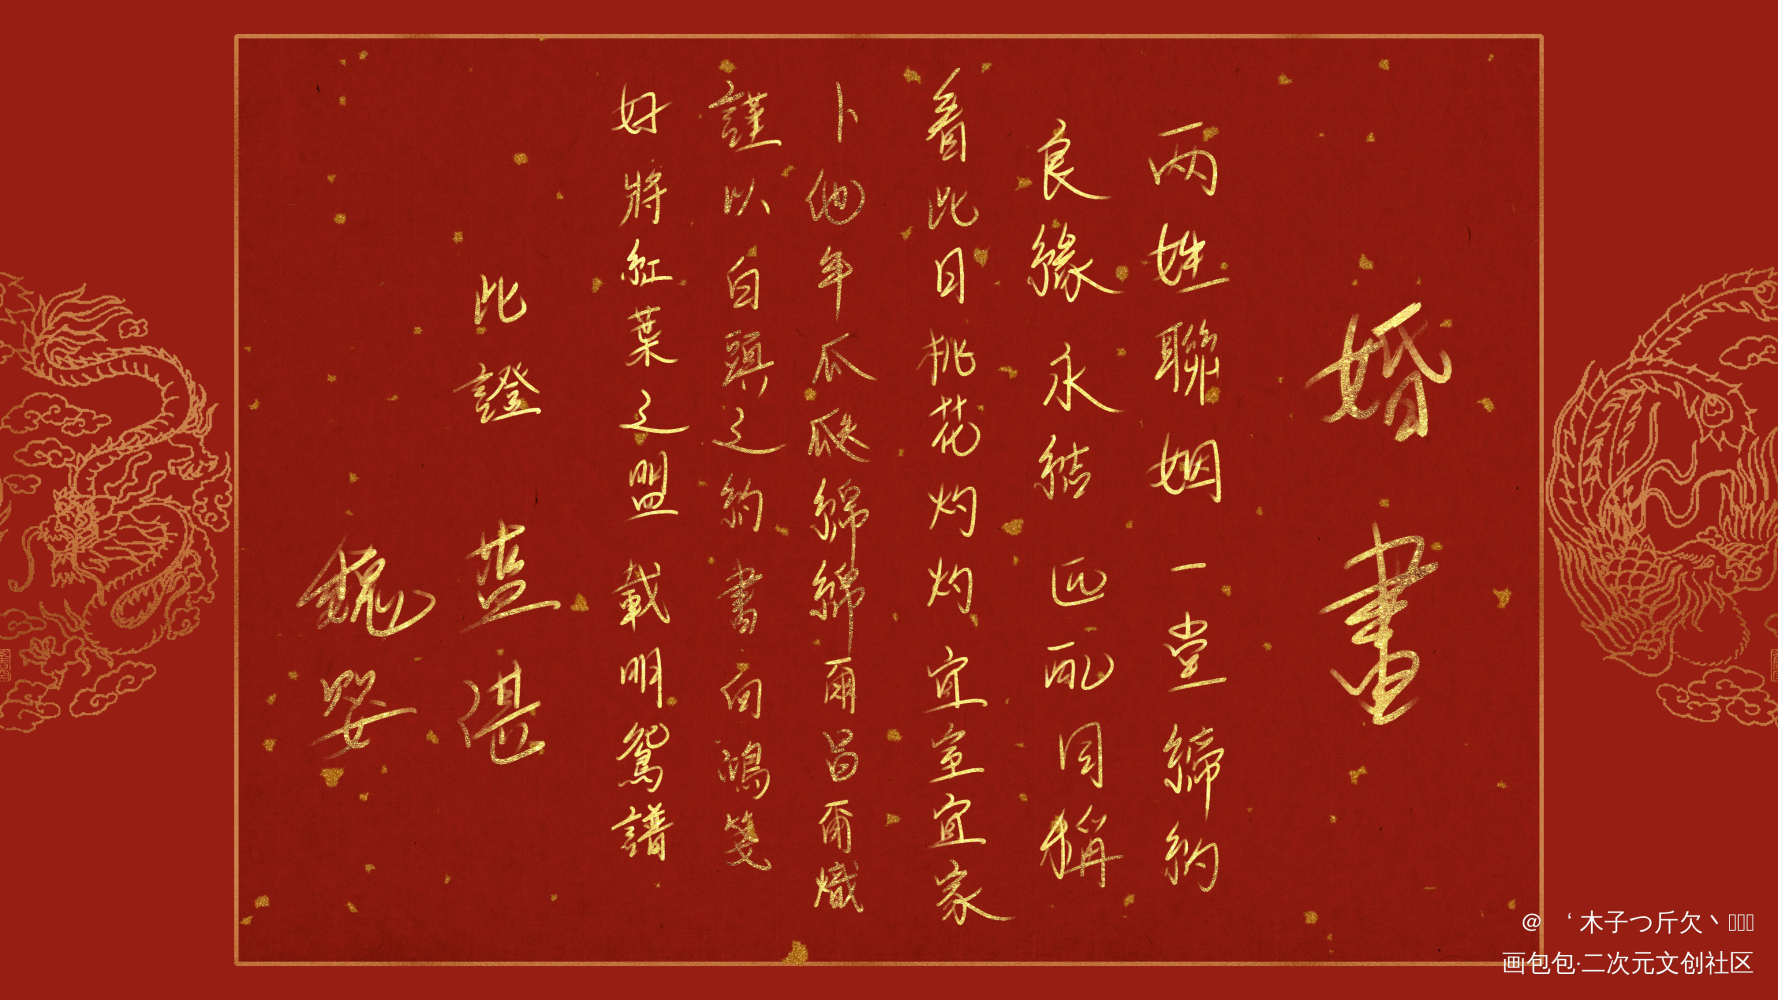 婚書
两姓聯姻一堂締約
良緣永結匹配同稱
看此日桃花灼灼宜室宜家
卜他年瓜瓞綿綿爾昌爾熾
謹以白頭之約書向鴻箋
好將紅葉之盟載明鴛譜
此證
藍湛
魏嬰
@ ‘ 木子つ斤欠丶
画包包·二次元文创社区